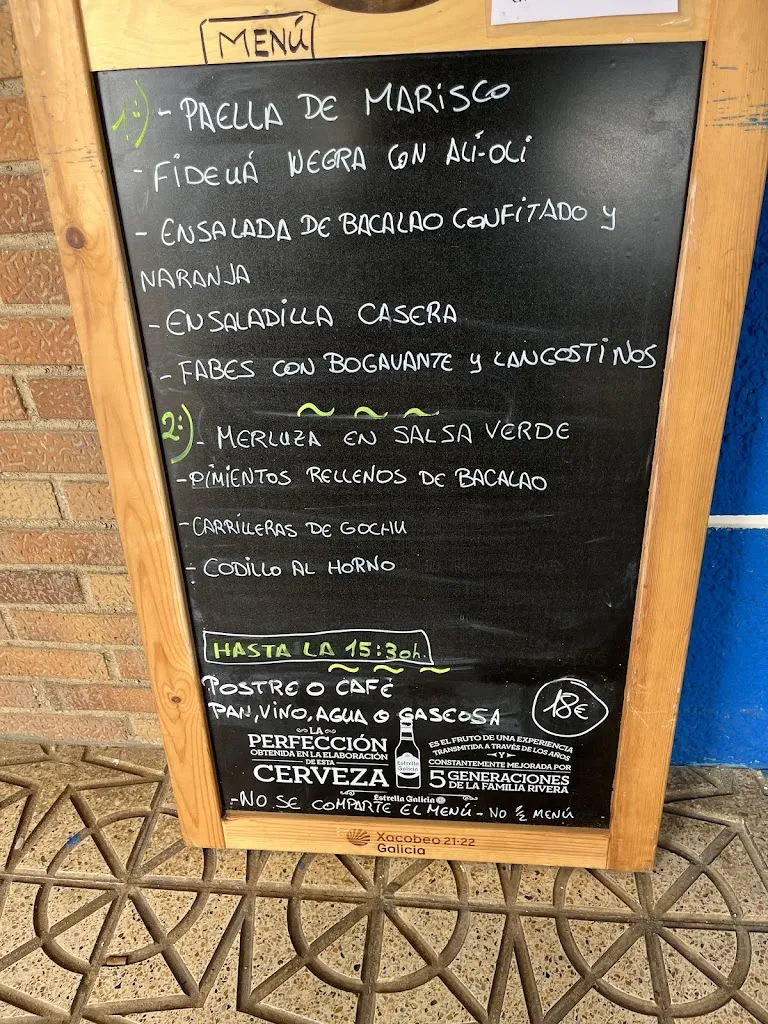 MENÚ
1:) - PAELLA DE MARISCO
- FIDEUÁ NEGRA CON ALI-OLI
- ENSALADA DE BACALAO CONFITADO Y
NARANJA
- ENSALADILLA CASERA
- FABES CON BOGAVANTE Y LANGOSTINOS
2:) - MERLUZA EN SALSA VERDE
- PIMIENTOS RELLENOS DE BACALAO
- CARRILLERAS DE GOCHU
- CODILLO AL HORNO
HASTA LA 15:30h.
POSTRE O CAFÉ
PAN, VINO, AGUA O GASEOSA
18€
LA
PERFECCIÓN
OBTENIDA EN LA ELABORACIÓN
DE ESTA
CERVEZA
Estrella Galicia
ES EL FRUTO DE UNA EXPERIENCIA
TRANSMITIDA A TRAVÉS DE LOS AÑOS
Y
CONSTANTEMENTE MEJORADA POR
5 GENERACIONES
DE LA FAMILIA RIVERA
Estrella Galicia
- NO SE COMPARTE EL MENÚ - NO ½ MENÚ
Xacobeo 21·22
Galicia